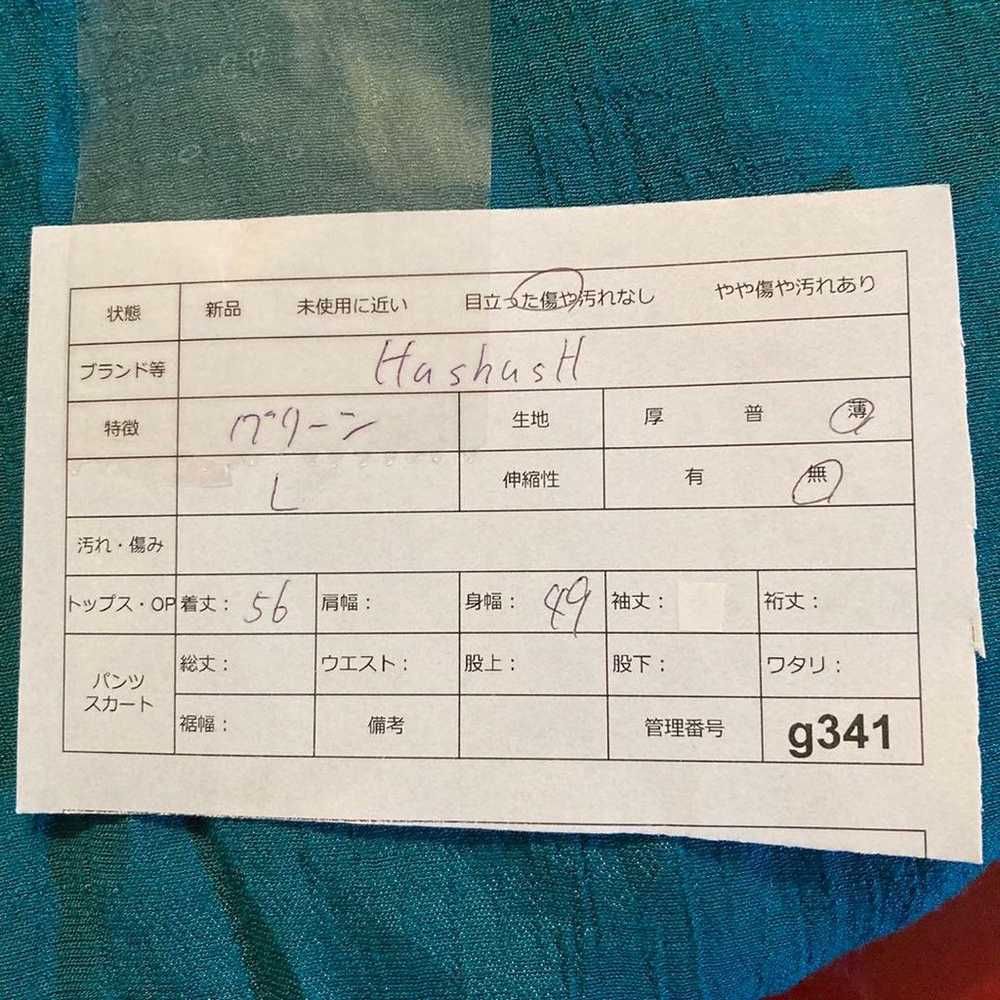 状態 新品 未使用に近い 目立った傷や汚れなし やや傷や汚れあり
ブランド等 HashusH
特徴 グリーン 生地 厚 普 薄
L 伸縮性 有 無
汚れ・傷み
トップス・OP 着丈： 56 肩幅： 身幅： 49 袖丈： 裄丈：
パンツ スカート 総丈： ウエスト： 股上： 股下： ワタリ：
裾幅： 備考 管理番号 g341